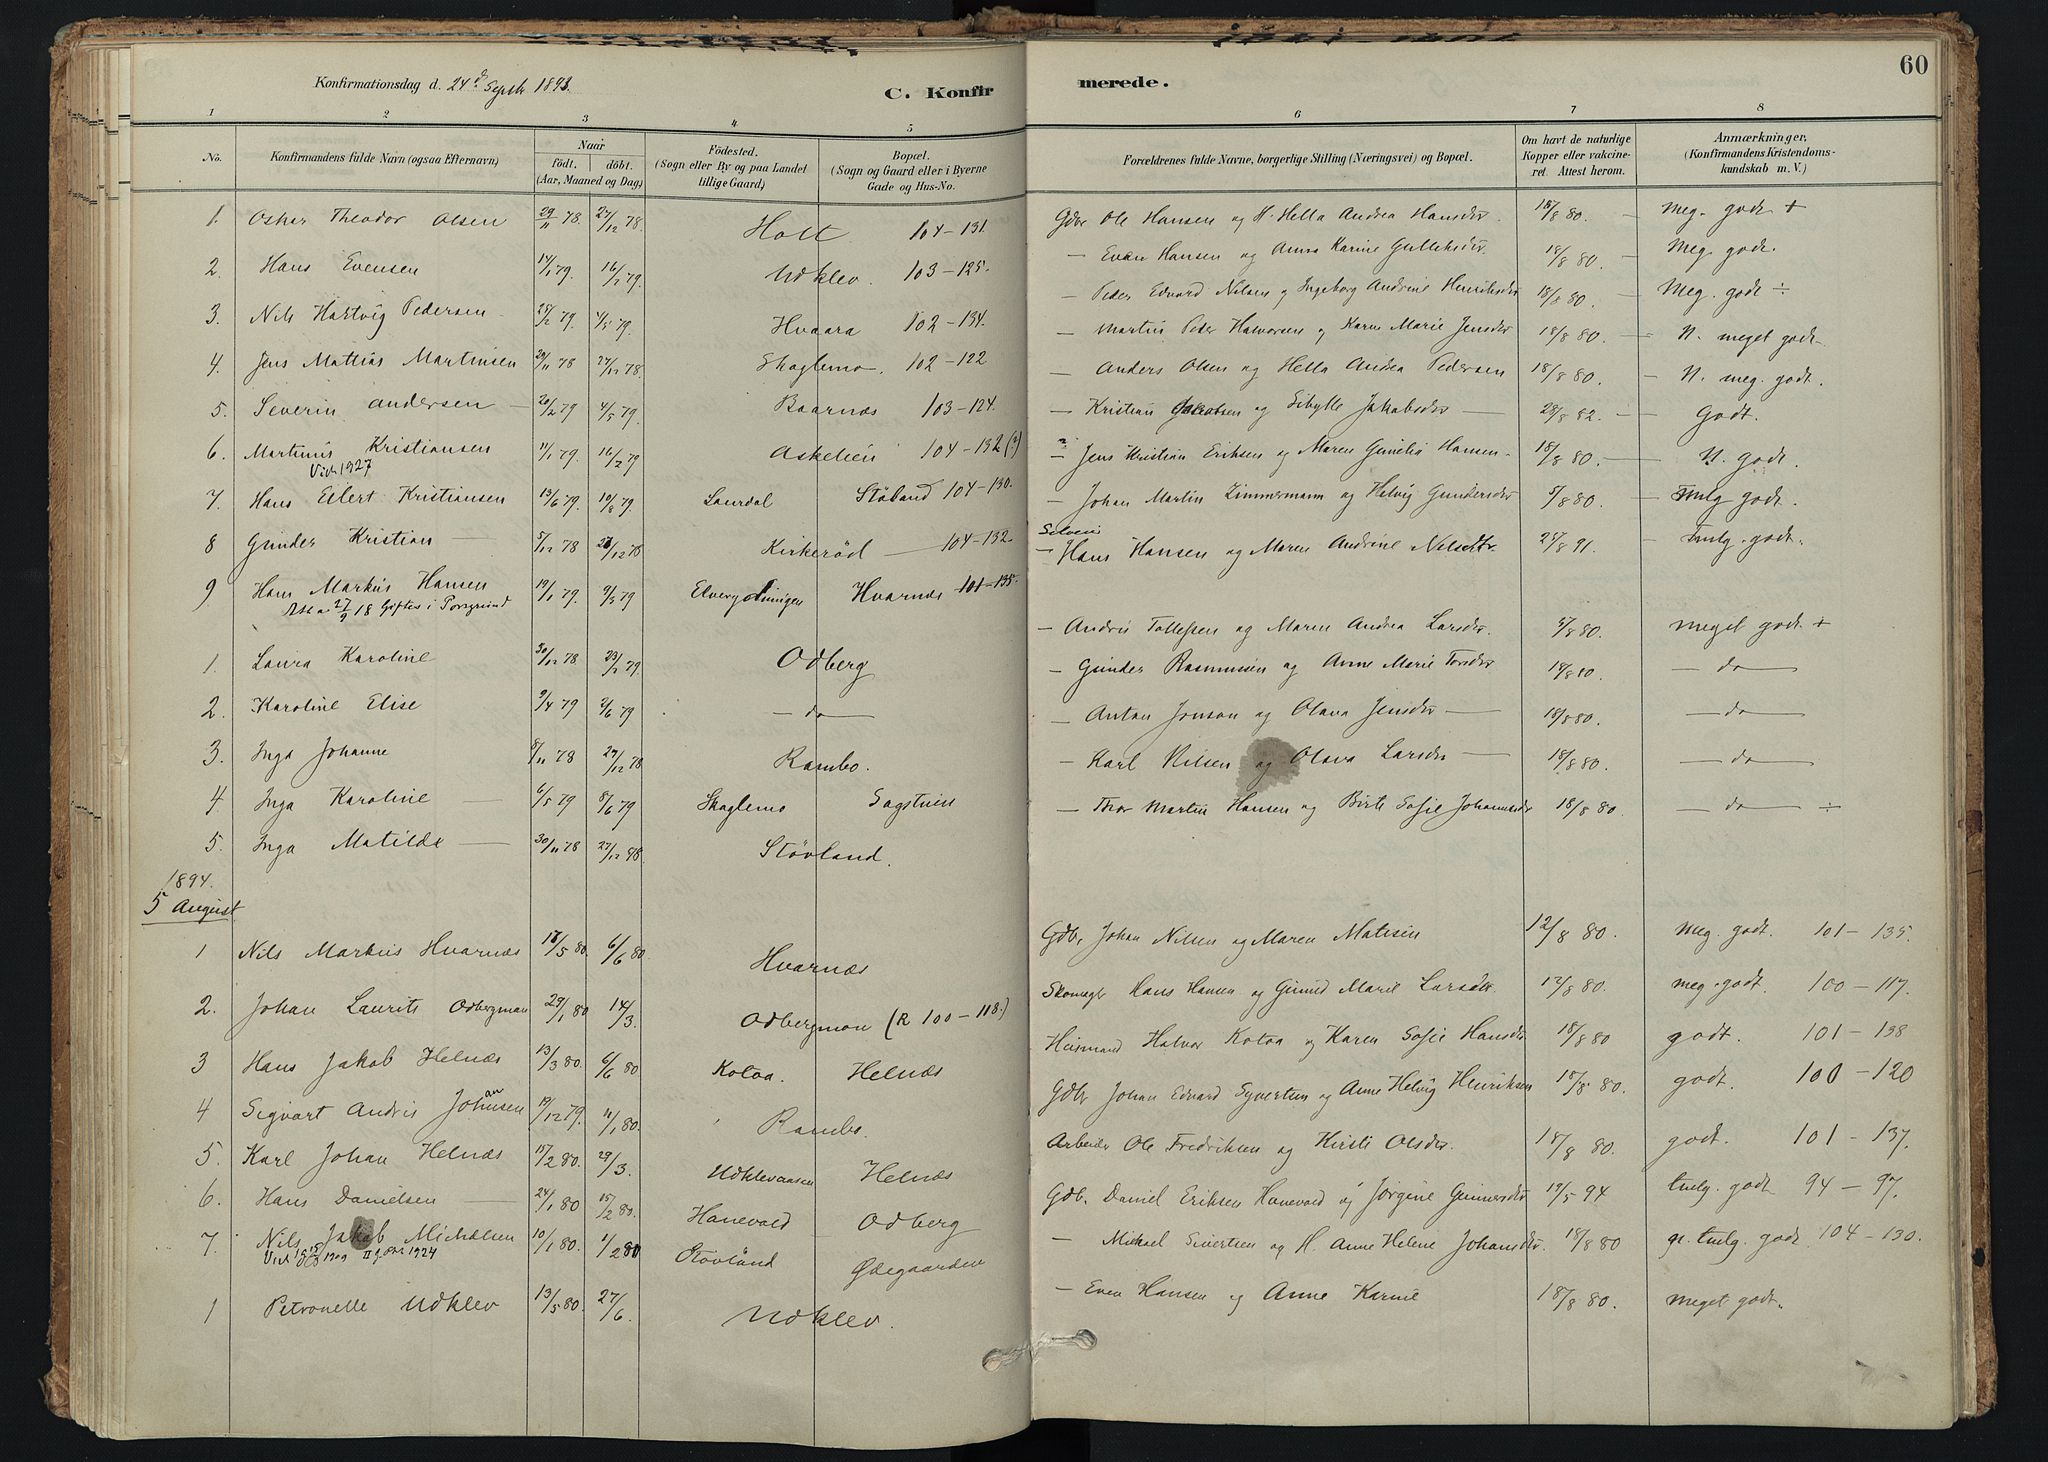 60
Konfirmationsdag d. 24d Septbr 1893.
C. Konfir merede.
1 2 3 4 5 6 7 8
No. Konfirmandens fulde Navn (ogsaa Efternavn) Naar födt. döbt. (Aar, Maaned og Dag) Födested. (Sogn eller By og paa Landet tillige Gaard) Bopæl. (Sogn og Gaard eller i Byerne Gade og Hus-No. Forældrenes fulde Navne, borgerlige Stilling (Næringsvei) og Bopæl. Om havt de naturlige Kopper eller vakcineret. Attest herom. Anmærkninger. (Konfirmandens Kristendomskundskab m. V.)
1. Oskar Theodor Olsen 29/11 78 27/12 78. Holt 104-131. Gdbr Ole Hansen og H. Hella Andrea Hansdr. 18/8 80. — Meg. godt +
2. Hans Evensen 14/1 79. 16/2 79. Udklev. 103-125. — Even Hansen og Anna Karine Gulliksdr. 18/8 80. — Meg. godt.
3. Nils Hartvig Pedersen 25/2 79. 4/5 79. Hvaara 102-134. — Peder Edvard Nilsen og Ingeborg Andrine Henriksdr 18/8 80. — Meg. godt ÷
4. Jens Mattias Martinsen 20/11 78 27/12 78. Skaglemo. 102-122 — Martin Peder Halvorsen og Karen Marie Jensdr 18/8 80. — N. meget godt
5. Severin Andersen — 20/2 79 4/5 79. Baarnæs 103-124. — Anders Olsen og Hella Andrea Pedersen 18/8 80. — N. meg. godt.
6. Martinus Kristiansen 11/1 79. 16/2 79 Askelien 104-132 (?) — Kristian Jakobsen og Sibylle Jakobsdr — 28/8 82. — Godt.
Vid. 1927
7. Hans Eilert Kristiansen 13/6 79. 10/8 79. Laurdal Stöland 104-130. — Jens Kristian Eriksen og Maren Gunelia Hansen. 18/8 80. — N. godt.
8 Gunder Kristian — 5/12 78 26/12 78 Kirkeröd — 104-132. — Johan Martin Zimmermann og Helvig Gundersdr 5/8 80. — Tmlg godt.
9 Hans Markus Hansen 19/1 79. 9/3 79 Hvarnæs 101-135. — Hans Hansen og Maren Andrine Nilsdtr. 25/8 91. — Tmlg. godt.
27/9 18 Giftes i Porsgrund
1. Laura Karoline 30/12 78 23/2 79. Odberg — Andris Tollefsen og Maren Andrea Larsdr. 5/8 80. meget godt +
2. Karoline Elise 9/4 79 2/6 79 — do — — Gunder Rasmussen og Anne Marie Torsdr 18/8 80. — do —
3. Inga Johanne 8/11 78 27/12 78 Rambo. — Anton Jonson og Olava Jensdr — 18/8 80. — do —
4. Inga Karoline — 6/5 79 8/6 79 Skaglemo Sagstuen — Karl Nilsen og Olava Larsdr — 18/8 80. — do —
5. Inga Matilde — 30/11 78 27/12 98. Stövland. — Thor Martin Hansen og Birte Sofie Johannesdr 18/8 80. — do — ÷
1894.
5 August
1 Nils Markus Hvarnæs 17/5 80 6/6 80 Hvarnæs Gdbr Johan Nilsen og Maren Matisen 12/8 80. meg. godt. 101-135.
2. Johan Laurits Odbergmoen 29/1 80 14/3. Odbergmoen (R 100-118.) Skomagr Hans Hansen og Gunnild Marie Larsdr. 12/8 80. meg. godt. 100-117.
3 Hans Jakob Helnæs 13/3 80 6/6 80 Kotoa. Helnæs Husmand Halvor Kotoa og Karen Sofie Hansdr 18/8 80 godt. 101-138
4 Sigvart Andris Johansen 19/12 79. 11/1 80. Rambo. Gdbr Johan Edvard Syvertsen og Anne Helvig Henriksen 18/8 80. godt. 100-120
5. Karl Johan Helnæs 15/2 80. 29/3. Udklevaasen Helnæs Arbeider Ole Fredriksen og Kirsti Olsdr. 18/8 80. godt. 101-137.
6. Hans Danielsen — 24/1 80 15/2 80. Hanevold Odberg Gdb. Daniel Eriksen Hanevold og Jørgine Gunnersdr 19/5 94 tmlg. godt 94-97.
7. Nils Jakob Michelsen 10/1 80. 1/2 80 Stövland Ødegaarden — Mikael Sivertsen og H. Anne Helene Johansdr. 18/8 80 tmlg. godt 104-130.
1924
1 Petronelle Udklev 13/5 80. 27/6. Udklev. — Even Hansen og Anne Karine 18/8 80. meget godt.